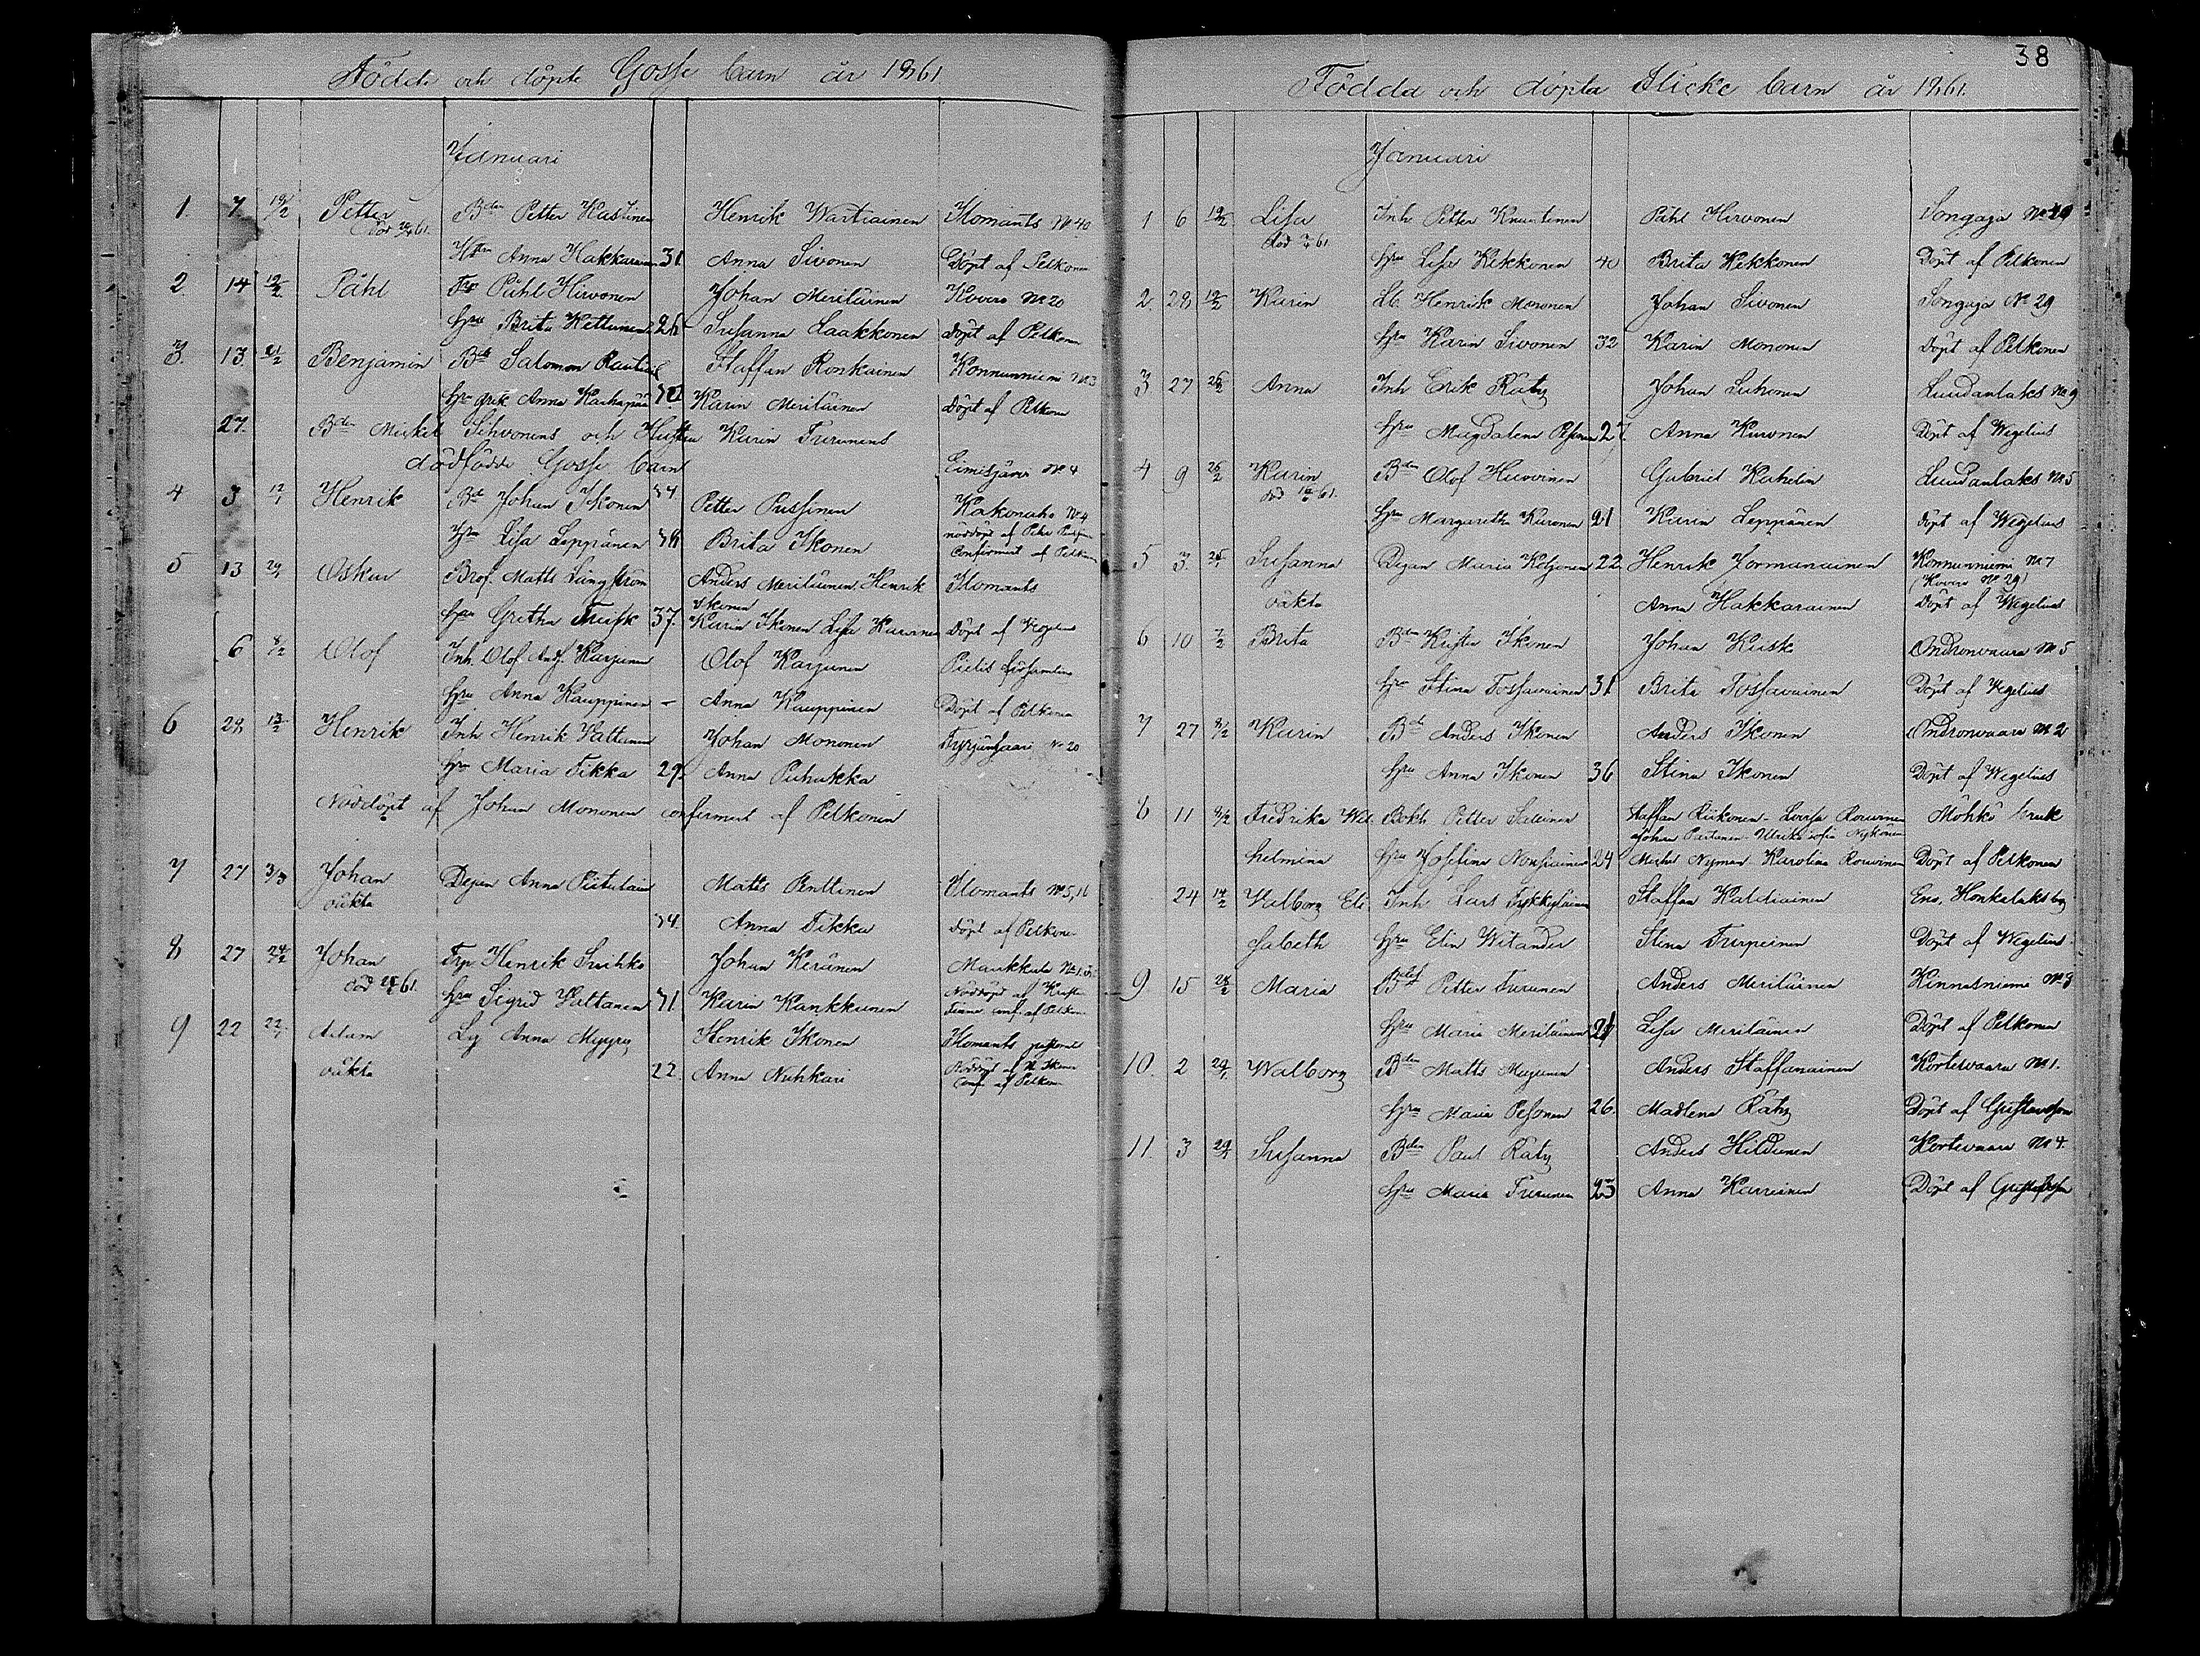 Födde och döpte Gosse barn år 1861
Januari
1. 7. 19/2 Petter Bden Petter Hustinen Henrik Wartiainen Ilomants No 40
död 61. Hru Anna Hakkarainen 31. Anna Sivonen Döpt af Pelkonen
2 14 19/2 Påhl Påhl Hirvonen Johan Meriläinen Kovero No 20
Hru Brita Kettunen 26 Susanna Laakkonen döpt af Pelkonen
3. 13. Benjamin Bde Salomon Staffan Ronkainen Konnunniemi No 3
Hru Anna Karin Meriläinen döpt af Pelkonen
27. Bden Mickel Sihvonens och Hustru Karin Turunens
dödfödde Gosse barn Eimisjärvi No 4
4 3 Henrik Bde Johan Ikonen 34. Petter Pussinen Kakonaho No 4
Hru Lisa Leppänen 38 Brita Ikonen nöddöpt af Petter
Confirmerat af Pelkonen
5 13 Oskar Brof. Matts Ljungström Anders Meriläinen Henrik Ilomants
Ikonen
Hru Gretha Turisk 37. Karin Ikonen Lisa Kuronen Döpt af Wegelius
6 8/2 Olof Inh. Olof Karjunen Olof Karjunen Pielis församling
Hru Anna Kauppinen – Anna Kauppinen Döpt af Pelkonen
6 28 13/2 Henrik Inh Henrik Vattanen Johan Mononen Tyrjänsaari No 20
Hru Maria Tikka 29. Anna Puhakka
Nöddöpt af Johan Mononen confirmerat af Pelkonen
7 27 3/3 Johan Dejan Anna Matts Penttinen Ilomants No 5, 16
oäkta 34. Anna Tikka Döpt af Pelkonen
8 27 24/2 Johan Henrik Suihko Johan Keränen Maukkula No 1.
död 61. Hru Sigrid Vattanen 31. Karin Kankkunen Nöddöpt af
conf. af Pelkonen
9 22 Adam Anna Myyry Henrik Ikonen Ilomants
oäkta 22. Anna Nuhkari Nöddöpt af H. Ikonen
Conf. af Pelkonen
38
Födda och döpta Flicke barn år 1861.
Januari
1 6 19/2 Lisa Inh Petter Knuutinen Påhl Hirvonen Songaja No 29
död 61. Hru Lisa Kekkonen 40 Brita Kekkonen Döpt af Pelkonen
2. 28 19/2 Karin Henrik Mononen Johan Sivonen Songaja No 29
Hru Karin Sivonen 32 Karin Mononen Döpt af Pelkonen
3 27 Anna Inh Erik Räty Johan Suhonen Luudanlaks No 9
Hru Magdalena Pesonen 27. Anna Kuronen Döpt af Wegelius
4 9 Karin Bden Olof Huovinen Gabriel Karhelin Luudanlaks No 5
död 61. Hru Margaretha Kuronen 21 Karin Leppänen Döpt af Wegelius
5 3. Susanna Dejan Maria Koljonen 22 Henrik Jormanainen Konnunniemi No 7
(Kovero No 29)
oäkta Anna Hakkarainen Döpt af Wegelius
6 10 Brita Bden Krister Ikonen Johan Kiiski Ondronvaara No 5
Hru Stina Tossavainen 31 Brita Tossavainen Döpt af Wegelius
7 27 Karin Bde Anders Ikonen Anders Ikonen Ondronvaara No 2
Hru Anna Ikonen 36 Stina Ikonen Döpt af Wegelius
8 11 Fredrika Wil- Bokh Petter Staffan Riikonen – Lovisa
Johan Partanen Ulrika Sofia Nykänen Möhkö bruk
helmina Hru Josefina Nousiainen 24 Michel Nyman Karolina Döpt af Pelkonen
24 Valborg Eli- Inh Lars Tykkyläinen Staffan Eno, Honkalaks by
sabeth Hru Elin Witander Stina Turpeinen Döpt af Wegelius
9 15 24/2 Maria Petter Turunen Anders Meriläinen Kinnasniemi No 3
Hru Maria Meriläinen 21 Lisa Meriläinen Döpt af Pelkonen
10. 2 Walborg Bden Matts Anders Staffanainen Kortevaara No 1.
Hru Maria Pesonen 26. Madlena Räty Döpt af Gustavsson
11. 3 Susanna Bden Paul Räty Anders Hiltunen Kortevaara No 4.
Hru Maria Turunen 23 Anna Karvinen Döpt af Gustafsson